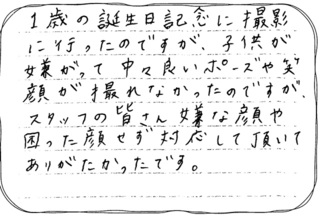 1歳の誕生日記念に撮影
に行ったのですが、子供が
嫌がって中々良いポーズや笑
顔が撮れなかったのですが、
スタッフの皆さん嫌な顔や
困った顔せず対応して頂いて
ありがたかったです。